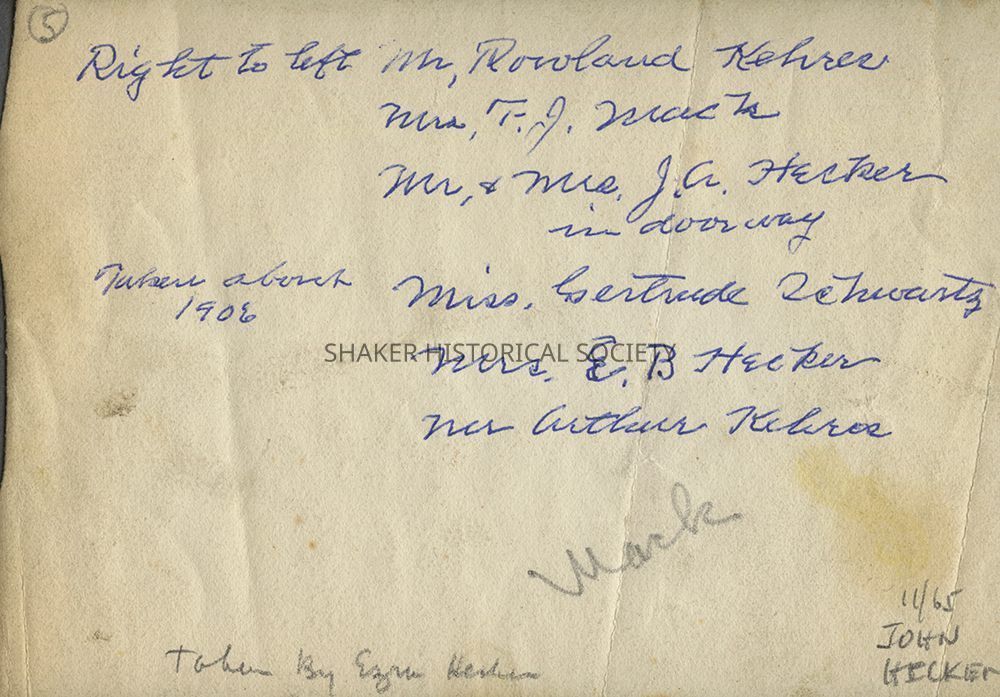 5
Right to left Mr, Rowland Kehres
Mrs, T. J. Mack
Mr, & Mrs. J. A. Hecker
in doorway
Taken about
1906
Miss. Gertrude Schwartz
SHAKER HISTORICAL SOCIETY
Mrs. E. B Hecker
Mr Arthur Kehres
Mack
11/65
JOHN
HECKER
Taken By Ezra Hecker